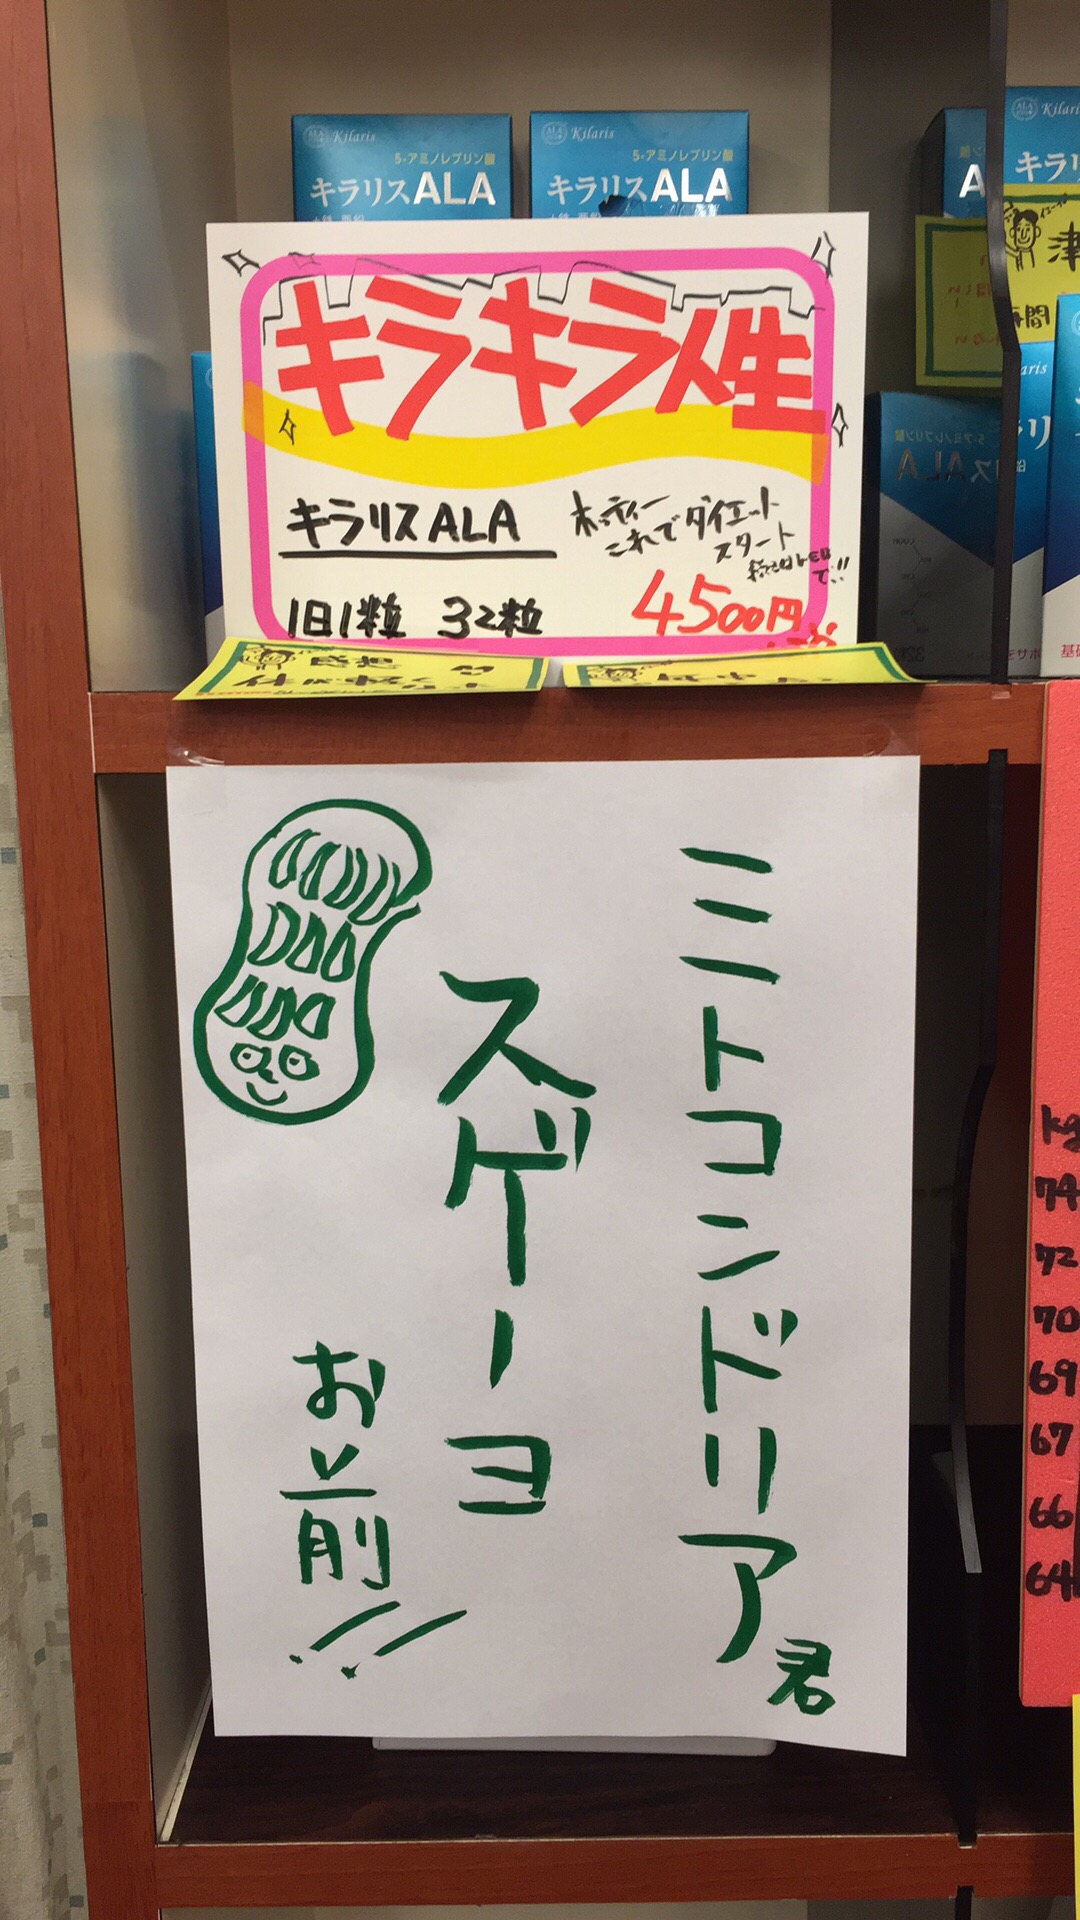 Kilaris
5-アミノレブリン酸
キラリスALA
Kilaris
5-アミノレブリン酸
キラリスALA
キラキラ人生
キラリスALA
ホッティー
これでダイエット
スタート
で!!
1日1粒 32粒
4500円
ミトコンドリア君
スゲーヨ
お前!!
津
時間
kg
74
72
70
69
67
66
64